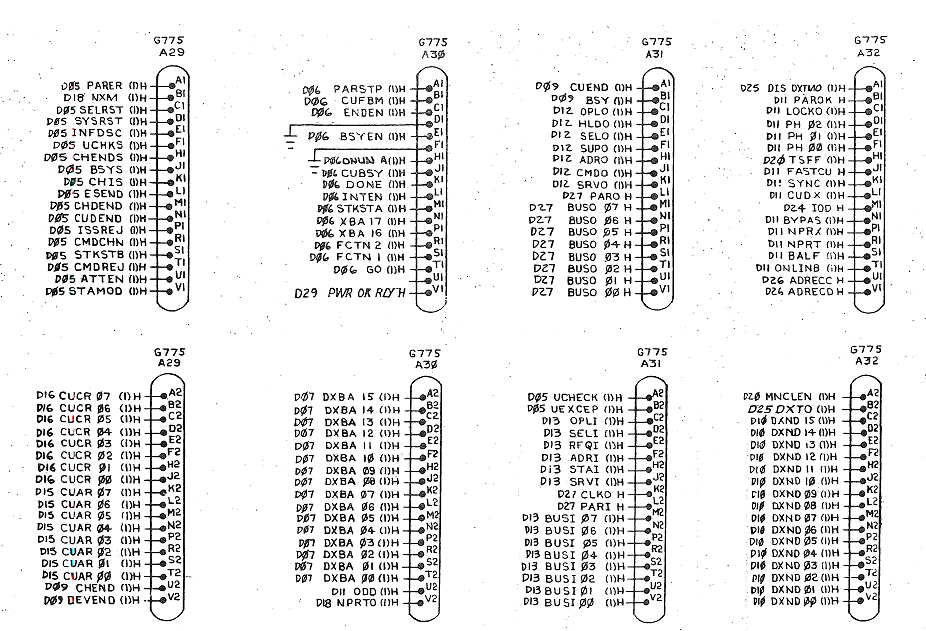 G775
A29
DØ5 PARER (1)H A1
D18 NXM (1)H B1
DØ5 SELRST (1)H C1
DØ5 SYSRST (1)H D1
DØ5 INFDSC (1)H E1
DØ5 UCHKS (1)H F1
DØ5 CHENDS (1)H H1
DØ5 BSYS (1)H J1
DØ5 CHIS (1)H K1
DØ5 ESEND (1)H L1
DØ5 CHDEND (1)H M1
DØ5 CUDEND (1)H N1
DØ5 ISSREJ (1)H P1
DØ5 CMDCHN (1)H R1
DØ5 STKSTB (1)H S1
DØ5 CMDREJ (1)H T1
DØ5 ATTEN (1)H U1
DØ5 STAMOD (1)H V1
G775
A3Ø
DØ6 PARSTP (1)H A1
DØ6 CUFBM (1)H B1
DØ6 ENDEN (1)H C1
D1
DØ6 BSYEN (1)H E1
F1
DØ6 A(1)H H1
DØ6 CUBSY (1)H J1
DØ6 DONE (1)H K1
DØ6 INTEN (1)H L1
DØ6 STKSTA (1)H M1
DØ6 XBA 17 (1)H N1
DØ6 XBA 16 (1)H P1
DØ6 FCTN 2 (1)H R1
DØ6 FCTN 1 (1)H S1
DØ6 GO (1)H T1
U1
D29 PWR OK RLY H V1
G775
A31
DØ9 CUEND (1)H A1
DØ9 BSY (1)H B1
D12 OPLO (1)H C1
D12 HLDO (1)H D1
D12 SELO (1)H E1
D12 SUPO (1)H F1
D12 ADRO (1)H H1
D12 CMDO (1)H J1
D12 SRVO (1)H K1
D27 PARO H L1
D27 BUSO Ø7 H M1
D27 BUSO Ø6 H N1
D27 BUSO Ø5 H P1
D27 BUSO Ø4 H R1
D27 BUSO Ø3 H S1
D27 BUSO Ø2 H T1
D27 BUSO Ø1 H U1
D27 BUSO ØØ H V1
G775
A32
D25 DIS DXTMO (1)H A1
D11 PAROK H B1
D11 LOCKO (1)H C1
D11 PH Ø2 (1)H D1
D11 PH Ø1 (1)H E1
D11 PH ØØ (1)H F1
D2Ø TSFF (1)H H1
D11 FASTCU H J1
D11 SYNC (1)H K1
D11 CUDX (1)H L1
D24 IOD H M1
D11 BYPAS (1)H N1
D11 NPRX (1)H P1
D11 NPRT (1)H R1
D11 BALF (1)H S1
D11 ONLINB (1)H T1
D26 ADRECC H U1
D26 ADRECD H V1
G775
A29
D16 CUCR Ø7 (1)H A2
D16 CUCR Ø6 (1)H B2
D16 CUCR Ø5 (1)H C2
D16 CUCR Ø4 (1)H D2
D16 CUCR Ø3 (1)H E2
D16 CUCR Ø2 (1)H F2
D16 CUCR Ø1 (1)H H2
D16 CUCR ØØ (1)H J2
D15 CUAR Ø7 (1)H K2
D15 CUAR Ø6 (1)H L2
D15 CUAR Ø5 (1)H M2
D15 CUAR Ø4 (1)H N2
D15 CUAR Ø3 (1)H P2
D15 CUAR Ø2 (1)H R2
D15 CUAR Ø1 (1)H S2
D15 CUAR ØØ (1)H T2
DØ9 CHEND (1)H U2
DØ9 DEVEND (1)H V2
G775
A3Ø
DØ7 DXBA 15 (1)H A2
DØ7 DXBA 14 (1)H B2
DØ7 DXBA 13 (1)H C2
DØ7 DXBA 12 (1)H D2
DØ7 DXBA 11 (1)H E2
DØ7 DXBA 1Ø (1)H F2
DØ7 DXBA Ø9 (1)H H2
DØ7 DXBA Ø8 (1)H J2
DØ7 DXBA Ø7 (1)H K2
DØ7 DXBA Ø6 (1)H L2
DØ7 DXBA Ø5 (1)H M2
DØ7 DXBA Ø4 (1)H N2
DØ7 DXBA Ø3 (1)H P2
DØ7 DXBA Ø2 (1)H R2
DØ7 DXBA Ø1 (1)H S2
DØ7 DXBA ØØ (1)H T2
D11 ODD (1)H U2
D18 NPRTO (1)H V2
G775
A31
DØ5 UCHECK (1)H A2
DØ5 UEXCEP (1)H B2
D13 OPLI (1)H C2
D13 SELI (1)H D2
D13 RFQI (1)H E2
D13 ADRI (1)H F2
D13 STAI (1)H H2
D13 SRVI (1)H J2
D27 CLKO H K2
D27 PARI H L2
D13 BUSI Ø7 (1)H M2
D13 BUSI Ø6 (1)H N2
D13 BUSI Ø5 (1)H P2
D13 BUSI Ø4 (1)H R2
D13 BUSI Ø3 (1)H S2
D13 BUSI Ø2 (1)H T2
D13 BUSI Ø1 (1)H U2
D13 BUSI ØØ (1)H V2
G775
A32
D2Ø MNCLEN (1)H A2
D25 DXTO (1)H B2
D1Ø DXND 15 (1)H C2
D1Ø DXND 14 (1)H D2
D1Ø DXND 13 (1)H E2
D1Ø DXND 12 (1)H F2
D1Ø DXND 11 (1)H H2
D1Ø DXND 1Ø (1)H J2
D1Ø DXND Ø9 (1)H K2
D1Ø DXND Ø8 (1)H L2
D1Ø DXND Ø7 (1)H M2
D1Ø DXND Ø6 (1)H N2
D1Ø DXND Ø5 (1)H P2
D1Ø DXND Ø4 (1)H R2
D1Ø DXND Ø3 (1)H S2
D1Ø DXND Ø2 (1)H T2
D1Ø DXND Ø1 (1)H U2
D1Ø DXND ØØ (1)H V2